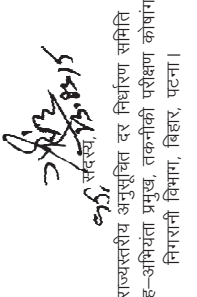 13.8.15
सदस्य,
राज्यस्तरीय अनुसूचित दर निर्धारण समिति
ह–अभियंता प्रमुख, तकनीकी परीक्षण कोषांग
निगरानी विभाग, बिहार, पटना।